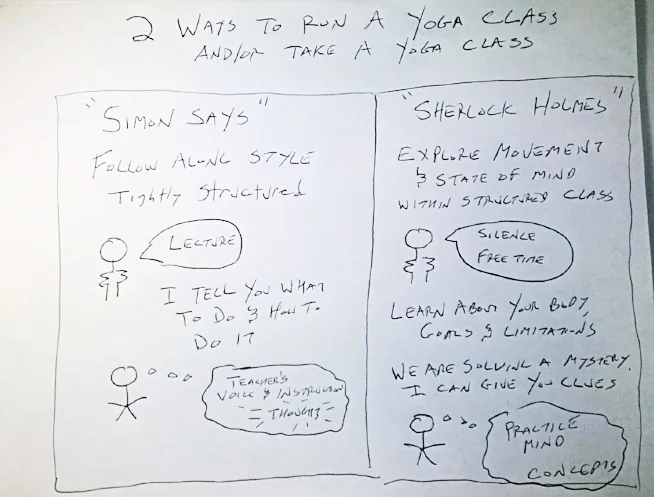 2 WAYS TO RUN A YOGA CLASS
AND/OR TAKE A YOGA CLASS
"SIMON SAYS"
FOLLOW ALONG STYLE
Tightly Structured
LECTURE
I TELL YOU WHAT
TO DO & HOW TO
DO IT
TEACHER'S
VOICE & INSTRUCTION
= THOUGHTS
"SHERLOCK HOLMES"
EXPLORE MOVEMENT
& STATE OF MIND
WITHIN STRUCTURED CLASS
SILENCE
FREE TIME
LEARN ABOUT YOUR BODY,
GOALS & LIMITATIONS
WE ARE SOLVING A MYSTERY.
I CAN GIVE YOU CLUES
PRACTICE
MIND
CONCEPTS